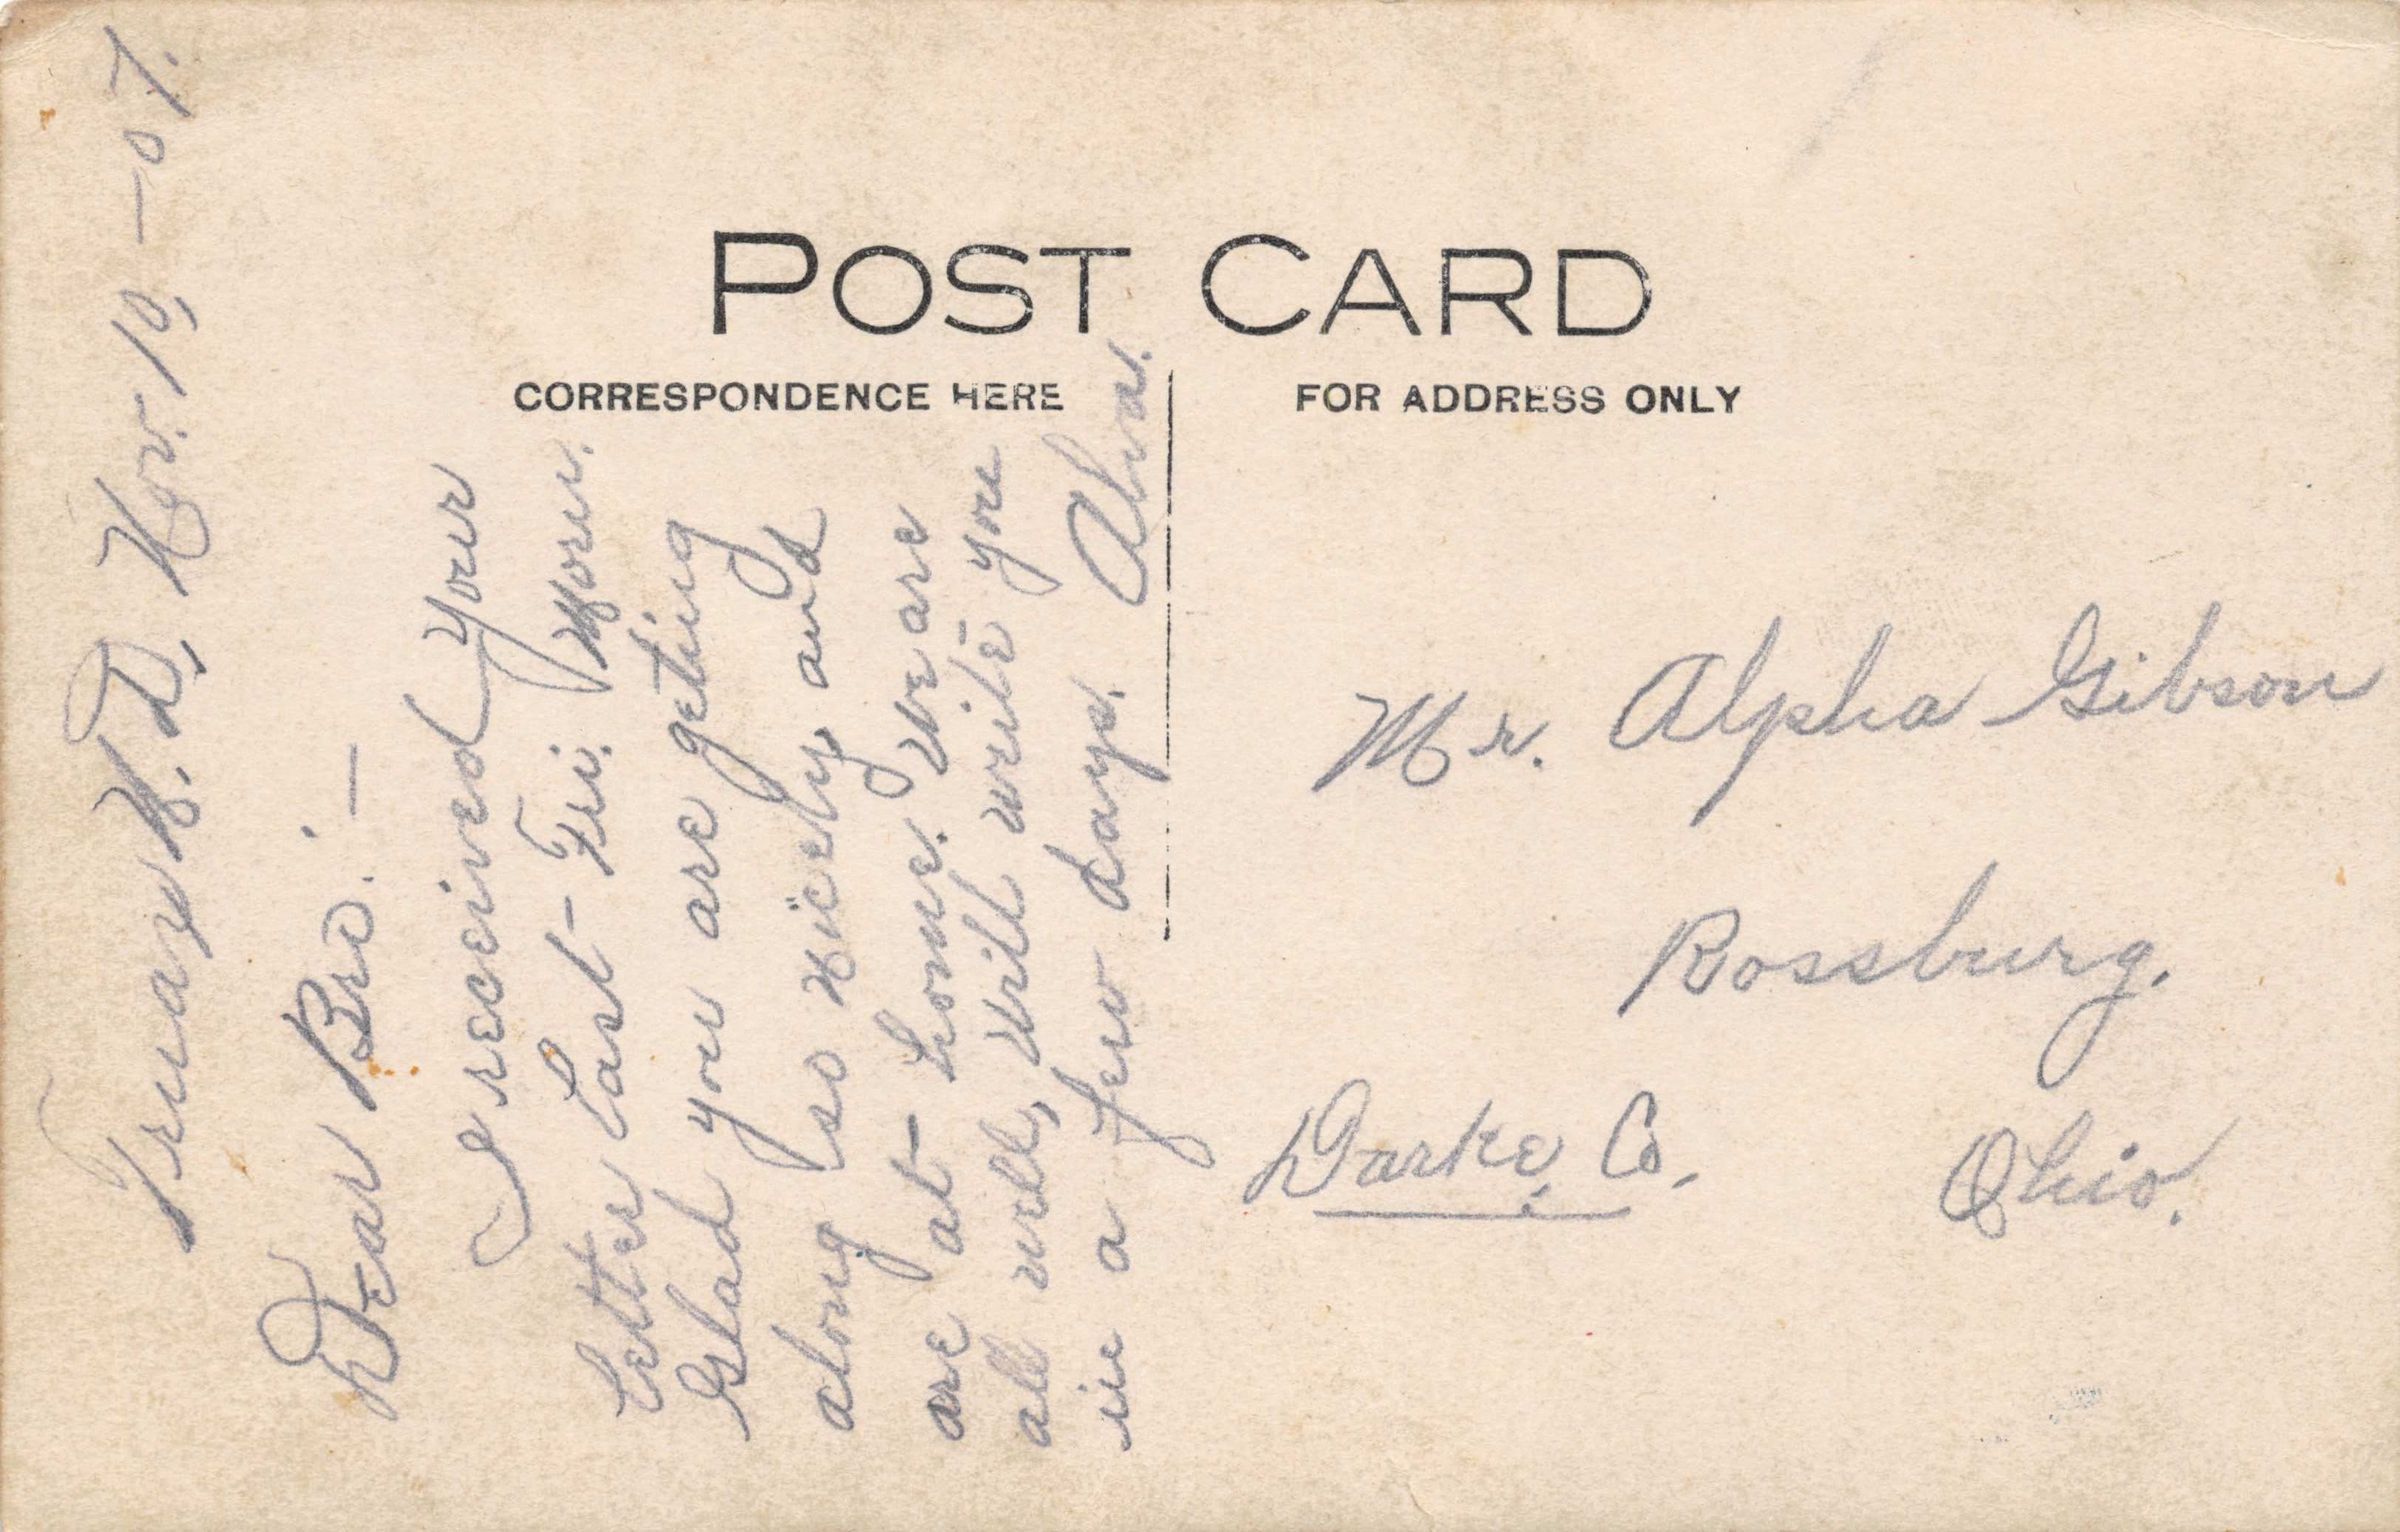 POST CARD
CORRESPONDENCE HERE
FOR ADDRESS ONLY
Truax N.D, Nov. 10, — 07.
Dear Bro. : —
I received your
letter last Fri. Morn.
Glad you are geting
along so nicely and
are at home. We are
all well, will write you
in a few days. Alva.
Mr. Alpha Gibson
Rossburg.
Darke, Co.
Ohio.